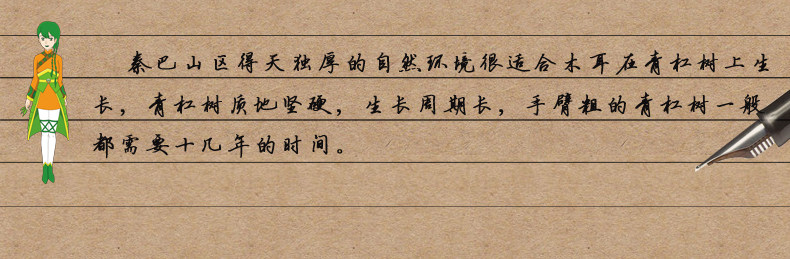 秦巴山区得天独厚的自然环境很适合木耳在青杠树上生
长，青杠树质地坚硬，生长周期长，手臂粗的青杠树一般
都需要十几年的时间。